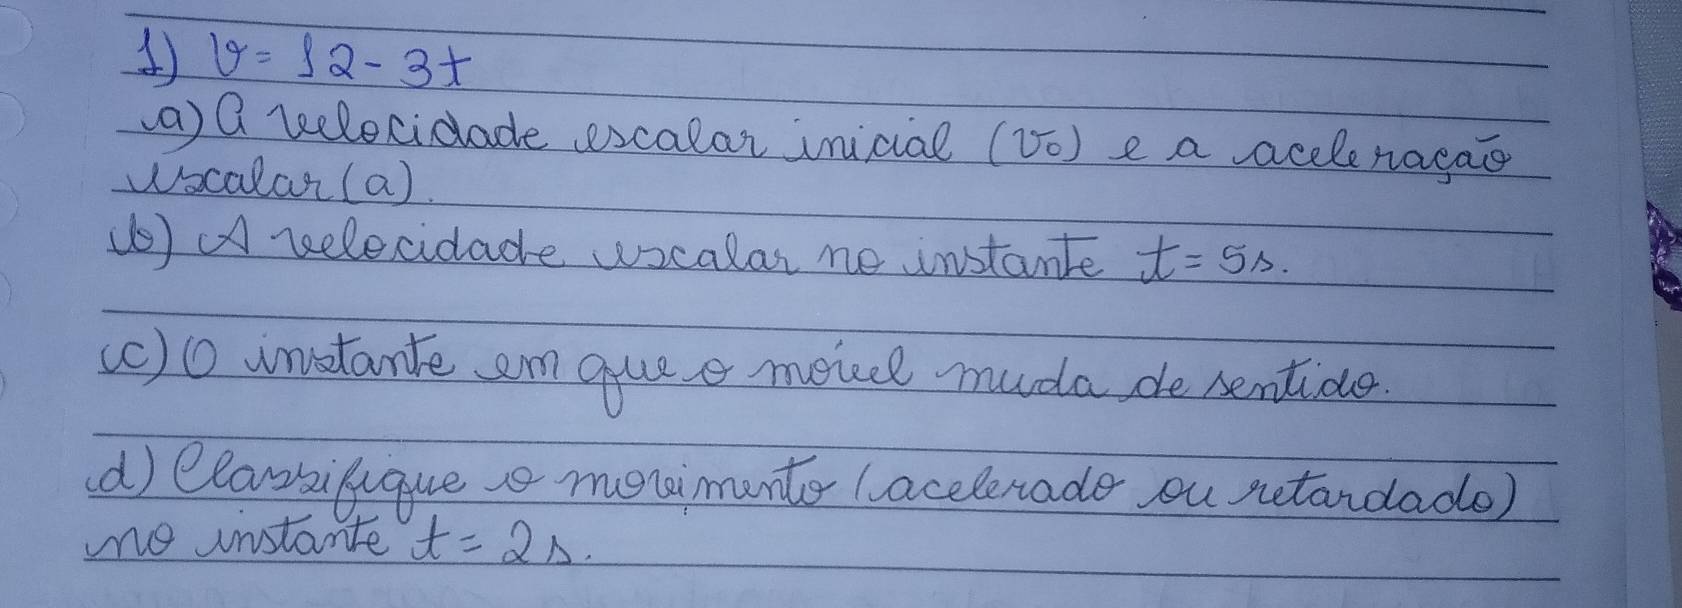 1) v = 12 - 3t
a) A velocidade escalar inicial (v₀) e a aceleração
escalar (a).
b) A velocidade escalar no instante t = 5s.
c) O instante em que o móvel muda de sentido.
d) Classifique o movimento (acelerado ou retardado)
no instante t = 2s.